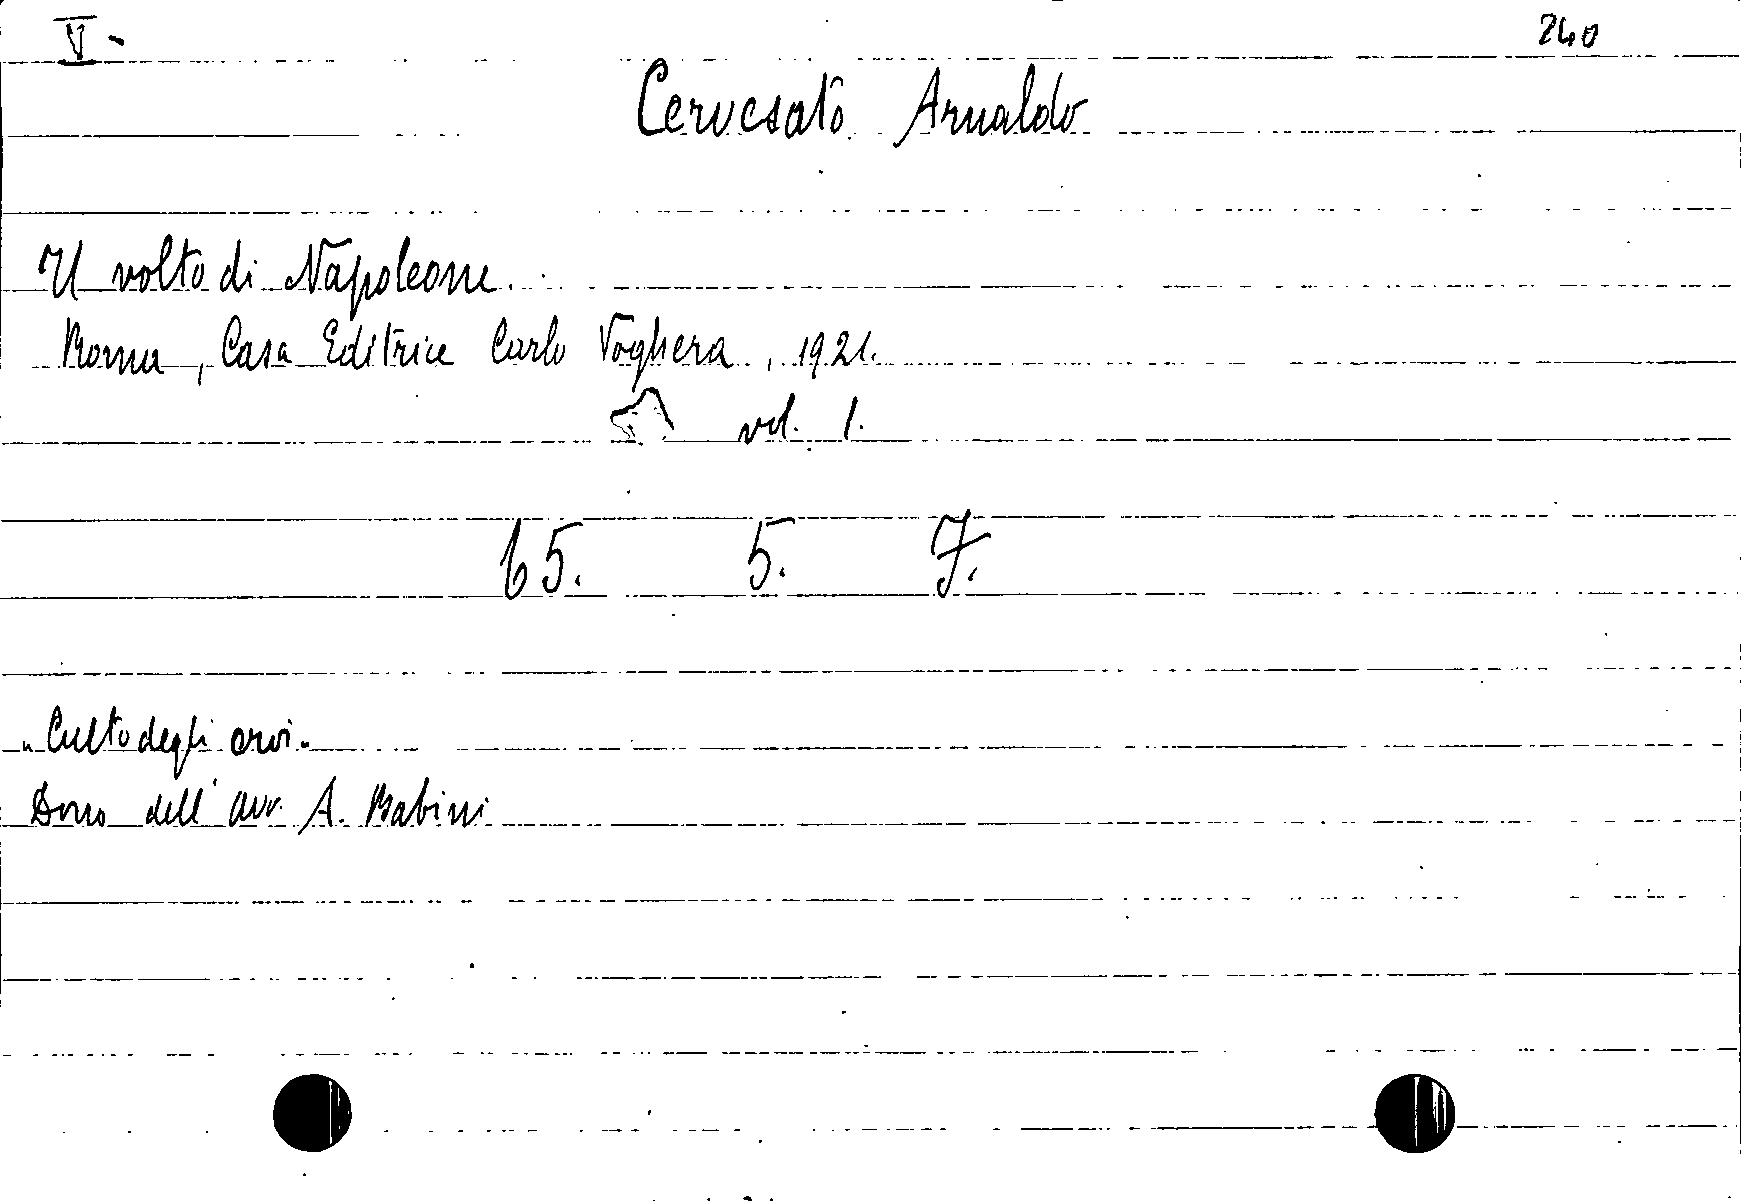 V - 240
Cervesato Arnaldo
Il volto di Napoleone.
Roma, Casa Editrice Carlo Voghera, 1921.
vol. 1.
65. 5. 7.
"Culto degli eroi"
Dono dell'avv. A. Babini